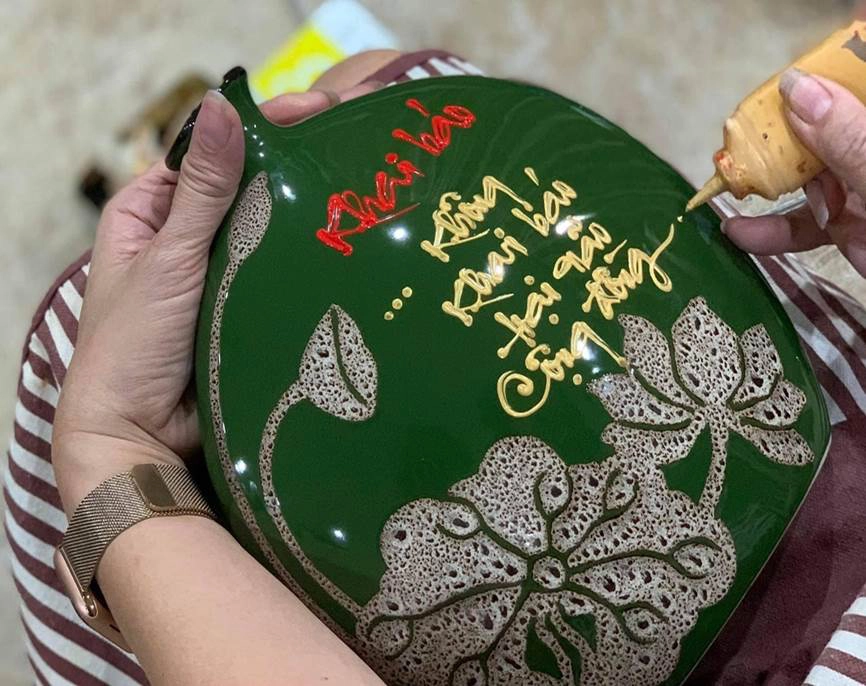 Khai báo
Không
Khai báo
tại gáo
Cộng đồng
...